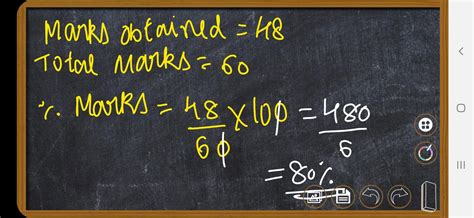 Marks obtained = 48
Total Marks = 60
% Marks = 48/60 × 100 = 480/6
= 80%